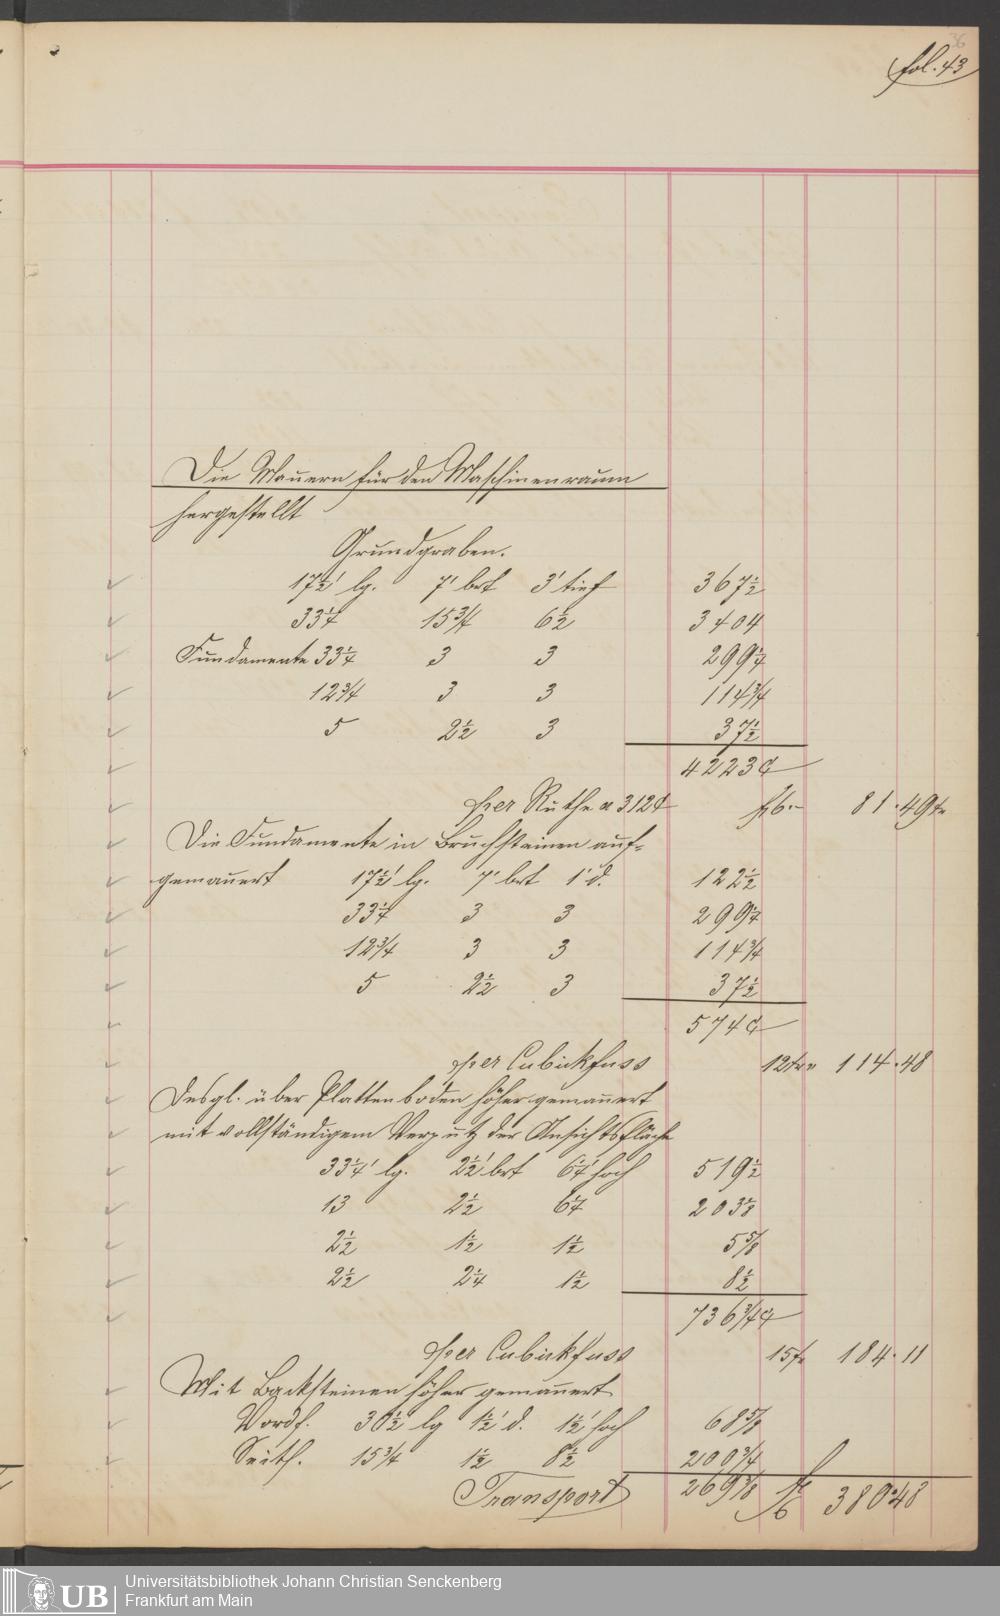 36
fol. 43
Die Mauern für den Maschinenraum
hergestellt
Grundgraben.
17½' lg. 7' brt 3' tief 367½
33¼ 15¾ 6½ 3404
Fundamente 33¼ 3 3 299¼
12¾ 3 3 114¾
5 2½ 3 37½
4223
per Ruthe a 312 f 6.- 81.49
Die Fundamente in Bruchsteinen auf-
gemauert 17½' lg. 7' brt 1' d. 122½
33¼ 3 3 299¼
12¾ 3 3 114¾
5 2½ 3 37½
574
per Cubickfuss 12 114.48
Desgl. über Plattenboden höher gemauert
mit vollständigem Verputz der Ansichtsfläche
33¼' lg. 2½' brt 6¼' hoch 519½
13 2½ 6¼ 203⅛
2½ 1½ 1½ 5⅝
2½ 2¼ 1½ 8½
736¾
per Cubickfuss 15 184.11
Mit Backsteinen höher gemauert
Vordf. 30½' lg 1½' d. 1½' hoch 68⅝
Seitf. 15¾ 1½ 8½ 200¾
Transport 269⅜ 380.48
UB Universitätsbibliothek Johann Christian Senckenberg
Frankfurt am Main